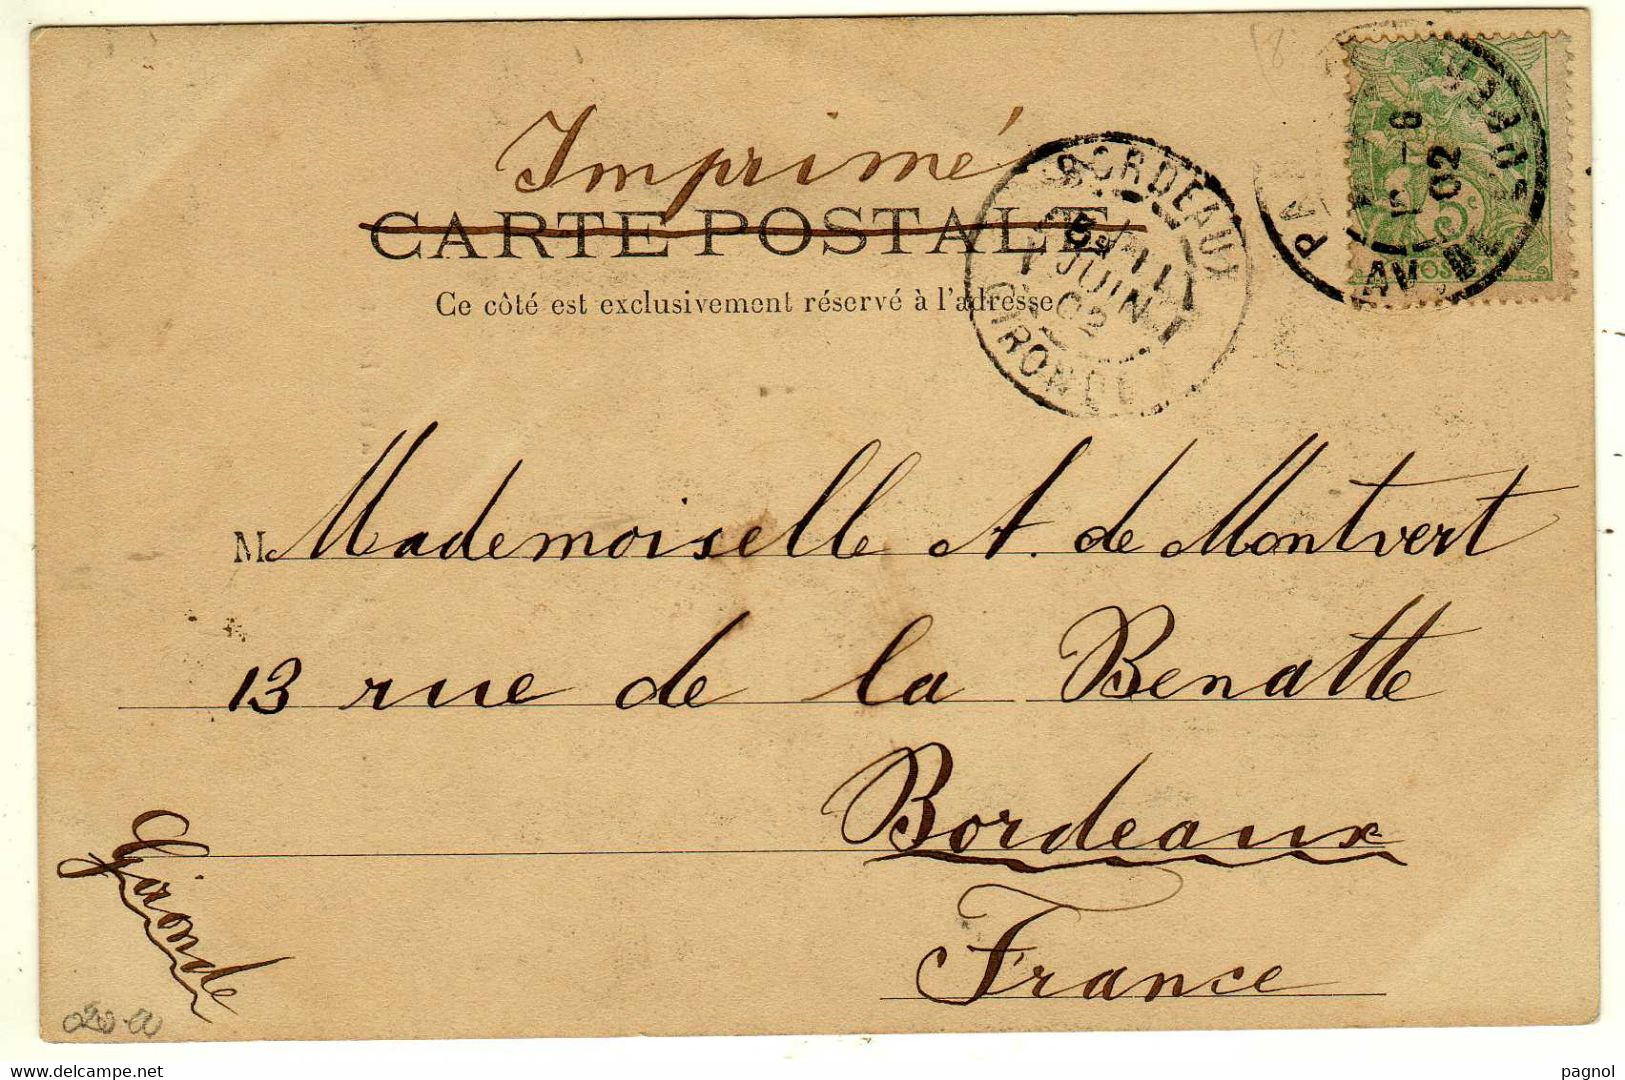 Imprimé
CARTE POSTALE
Ce côté est exclusivement réservé à l'adresse
BORDEAUX
JUIN
02
GIRONDE
5c
02
M. Mademoiselle A. de Montvert
13 rue de la Benatte
Bordeaux
France
Gironde
pagnol